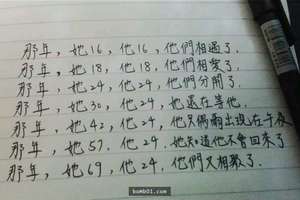 那年，她16，他16，他們相遇了.
那年，她18，他18，他們相愛了.
那年，她24，他24，他們分開了.
那年，她30，他24，她還在等他
那年，她42，他24，他只偶爾出現在午夜
那年，她57，他24．她知道他不會回來了
那年，她69，他24．他們又相聚了.
bomb01.com